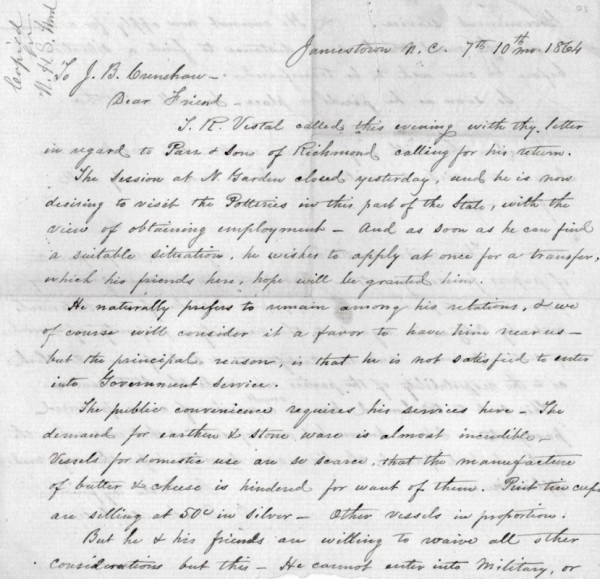 Copied
N.H.C. Ford
Jamestown N. C. 7th 10th mo. 1864
To J. B. Crenshaw—
Dear Friend—
T. R. Vestal called this evening with thy letter
in regard to Parr & Sons of Richmond calling for his return.
The Session at N. Garden closed yesterday, and he is now
desiring to visit the Potteries in this part of the State, with the
view of obtaining employment— And as soon as he can find
a suitable situation, he wishes to apply at once for a transfer,
which his friends here, hope will be granted him.
He naturally prefers to remain among his relations, & we
of course will consider it a favor to have him near us—
but the principal reason, is that he is not satisfied to enter
into Government Service.
The public convenience requires his services here— The
demand for earthen & stone ware is almost incredible—
Vessels for domestic use are so scarce, that the manufacture
of butter & cheese is hindered for want of them. Pint tin cups
are selling at 50c in silver— Other vessels in proportion.
But he & his friends are willing to waive all other
considerations but this— He cannot enter into Military, or